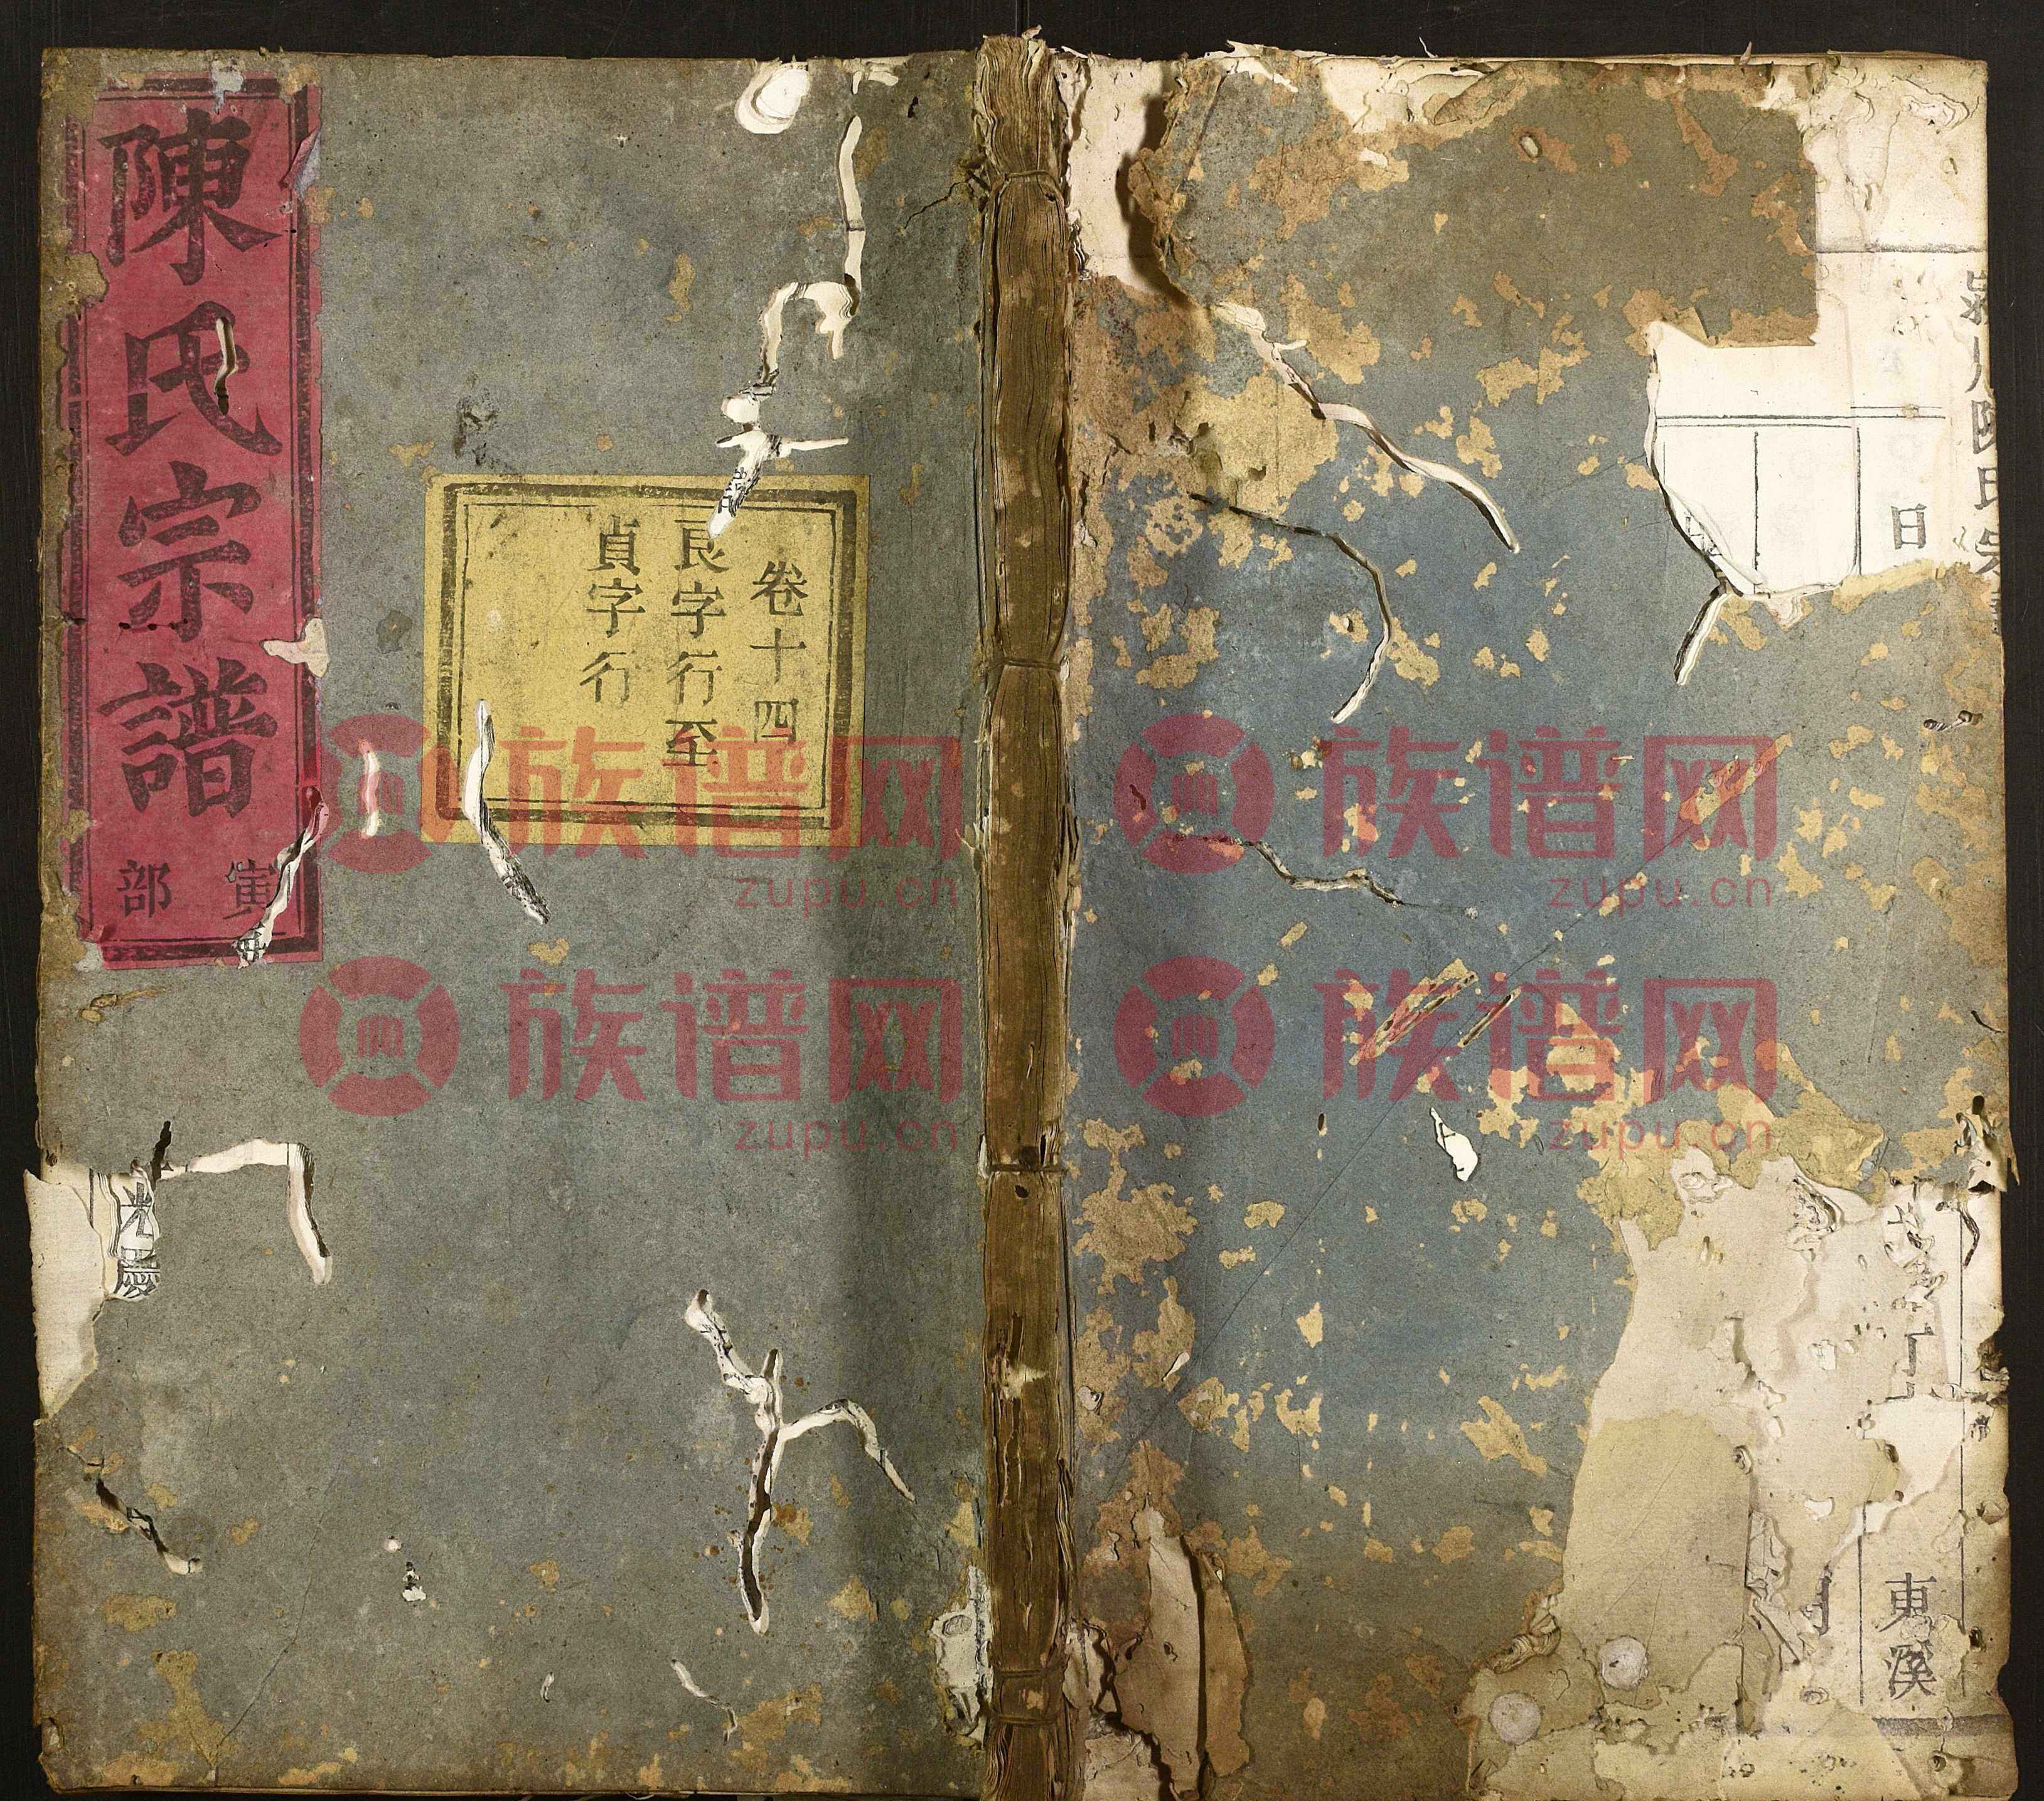 陳氏宗譜
寅部
卷十四
良字行至
貞字行
光
日
陳氏宗
東溪
族谱网
zupu.cn
族谱网
zupu.cn
族谱网
zupu.cn
族谱网
zupu.cn